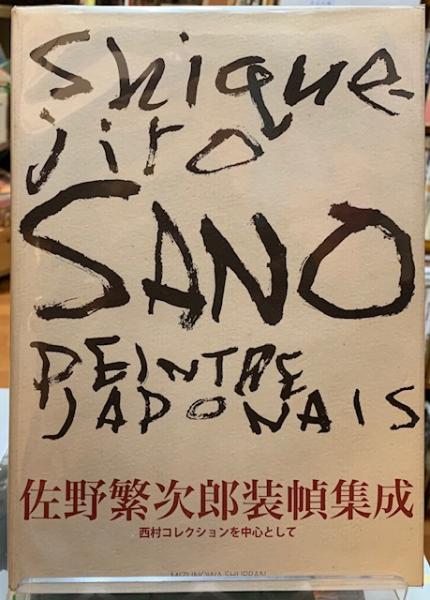 Shigue
jiro
SANO
PEINTRE
JAPONAIS
佐野繁次郎装幀集成
西村コレクションを中心として
MIZUNOWA SHUPPAN